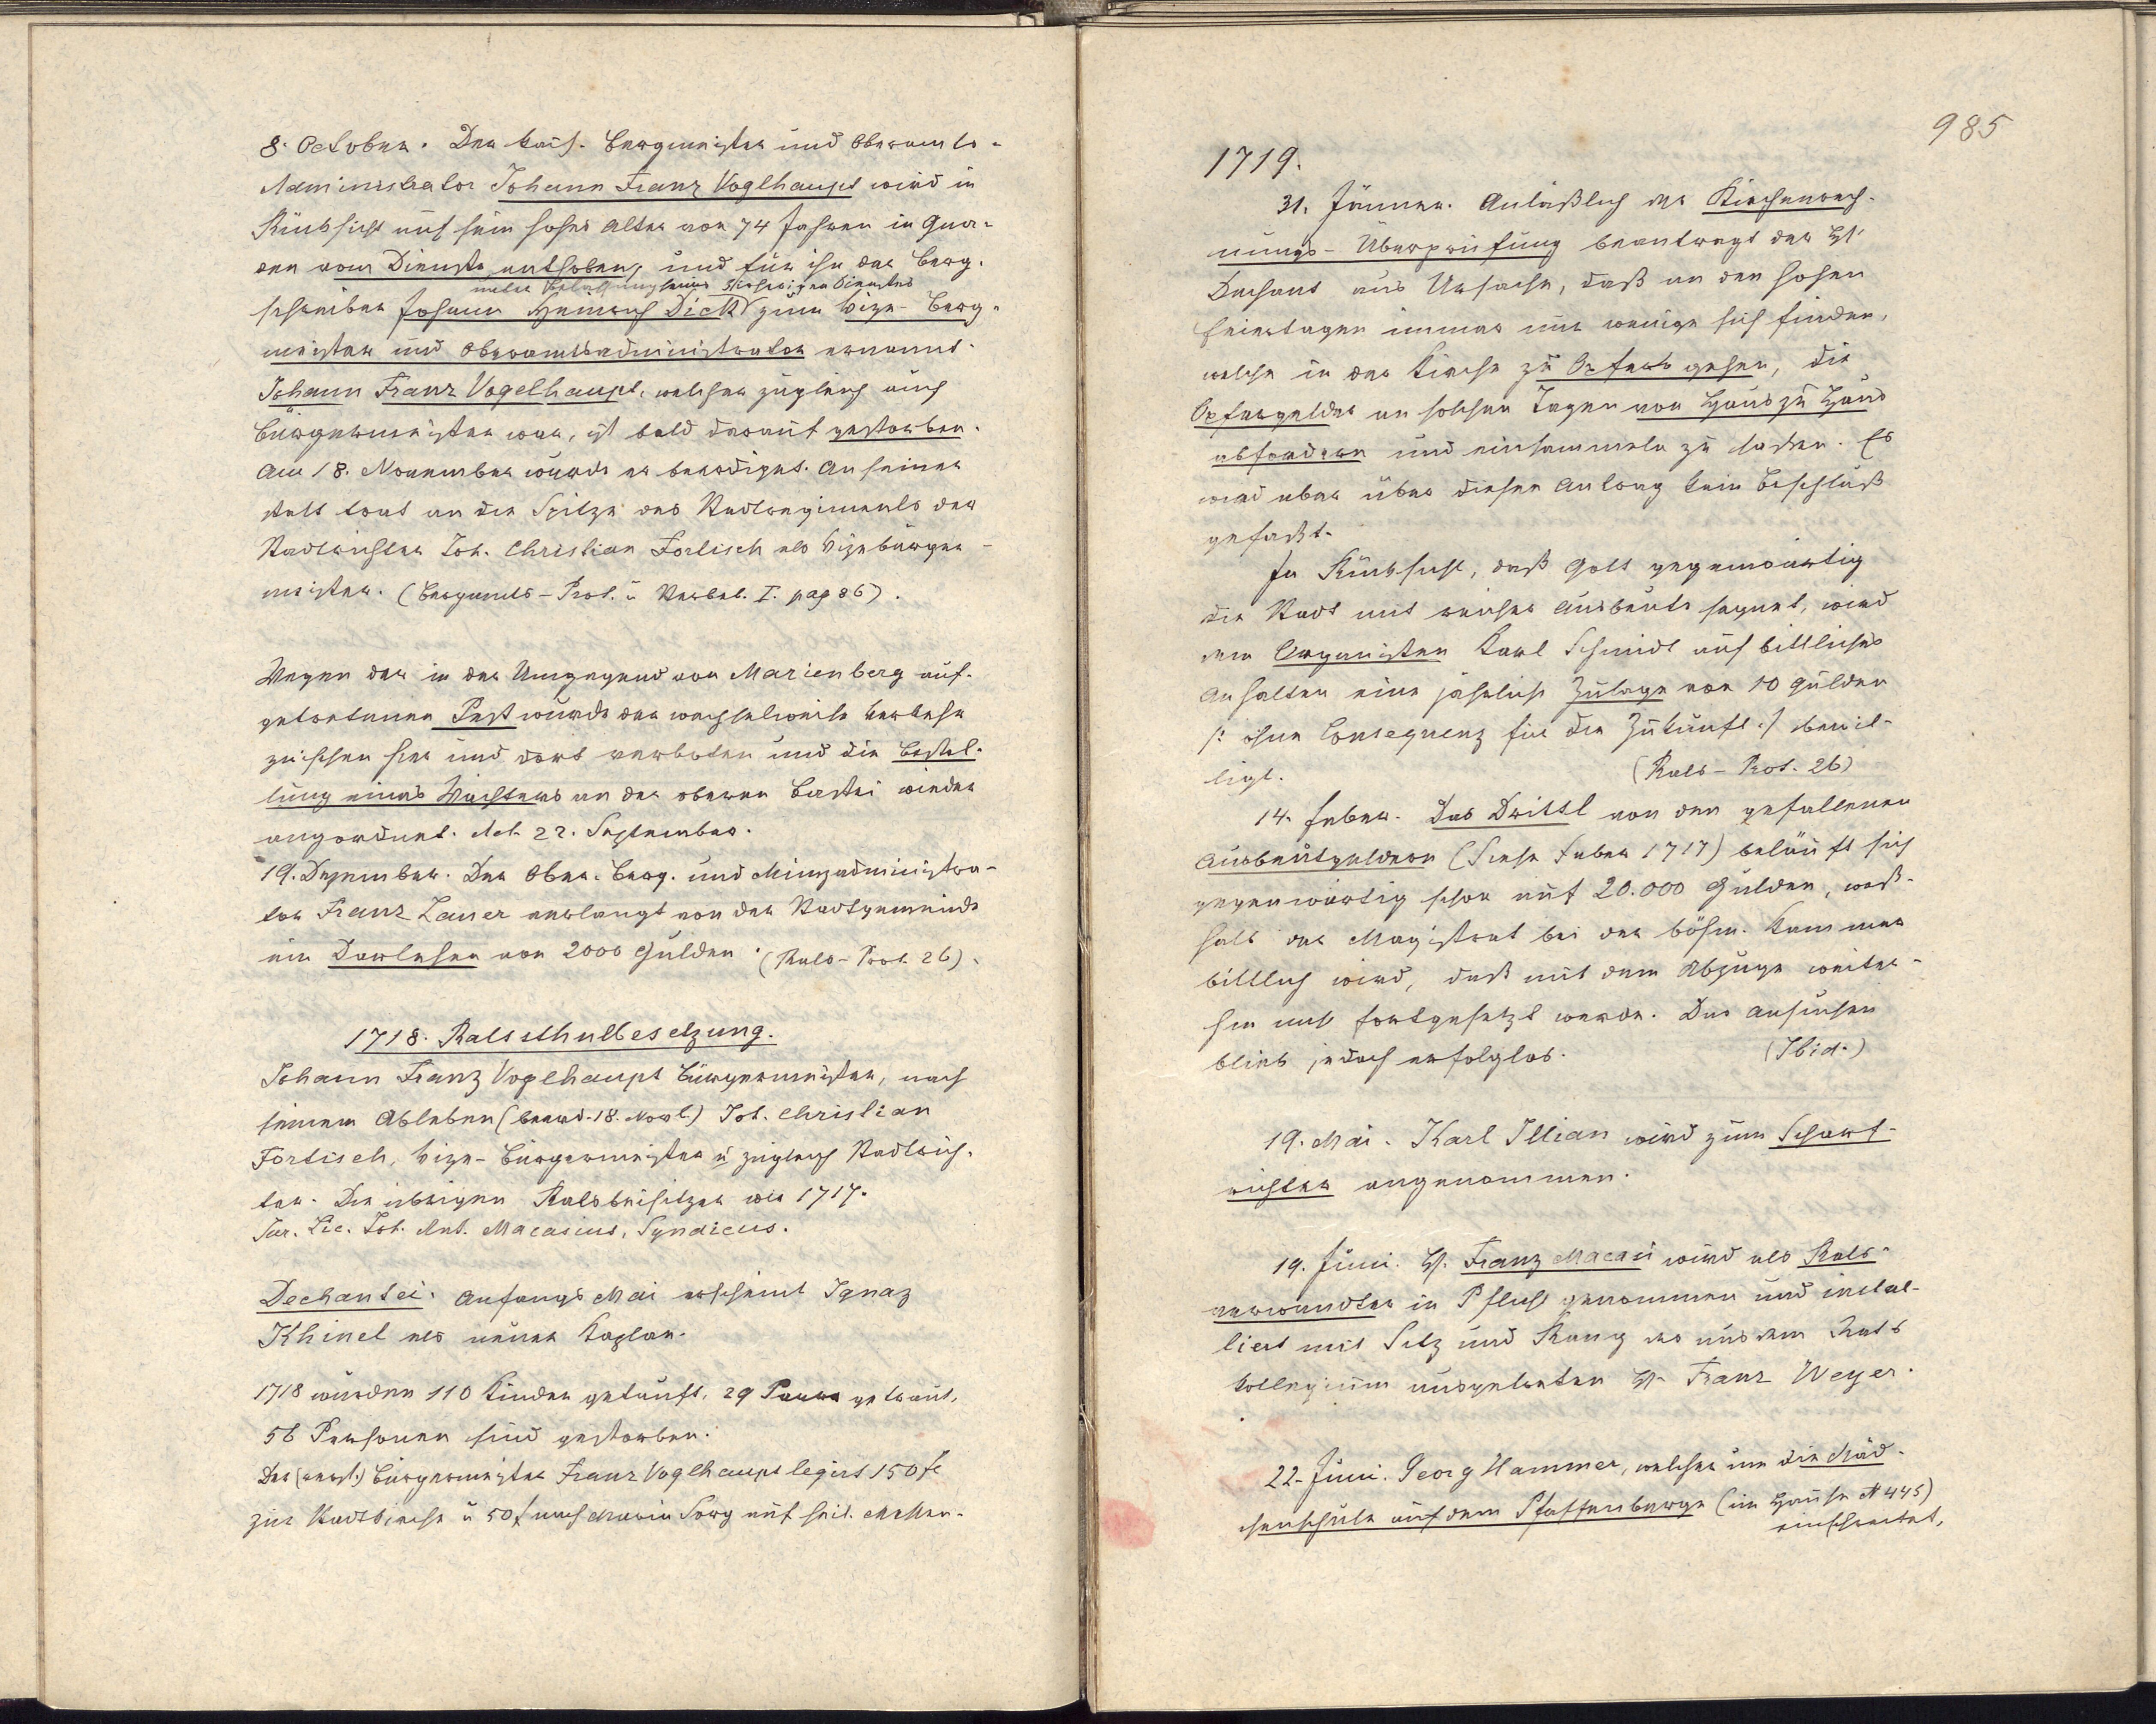 8. October. Der kais. Bergmeister und Oberamts-
Administrator Johann Franz Voglhaupt wird in
Rücksicht auf sein hohes Alter von 74 Jahren in Gna-
den vom Dienste enthoben, und für ihn der Berg-
nebst Belassung seines bisherigen Dienstes
schreiber Johann Heinrich Dick zum Vize-Berg-
meister und Oberamtsadministrator ernannt.
Johann Franz Vogelhaupt, welcher zugleich auch
Bürgermeister war, ist bald darauf gestorben.
Am 18. November wurde er beerdiget. An seiner
statt trat an die Spitze des Stadtregiments der
Stadtrichter Joh. Christian Förtisch als Vizebürger-
meister. (Bergamts-Prot. u. Verbel. I. pag 86).
Wegen der in der Umgegend von Marienberg auf-
getretenen Pest wurde der wechselweise Verkehr
zwischen hier und dort verboten und die Bestel-
lung eines Wächters an der oberen Bastei wieder
angeordnet. Act. 22. September.
19. Dezember. Der Ober-Berg- und Münzadministra-
tor Franz Lauer verlangt von der Stadtgemeinde
ein Darlehen von 2000 Gulden. (Rats-Prot. 26).
1718. Ratssthulbesetzung.
Johann Franz Voglhaupt Bürgermeister, nach
seinem Ableben (beerd. 18. Novb.) Joh. Christian
Förtisch, Vize-Bürgermeister u zugleich Stadtrich-
ter. Die übrigen Ratsbeisitzer wie 1717.
Jur. Lic. Joh. Ant. Macasius, Syndicus.
Dechantei. Anfangs Mai erscheint Ignaz
Khinel als neuer Kaplan.
1718 wurden 110 Kinder getauft, 29 Paare getraut,
56 Personen sind gestorben.
Der (verst.) Bürgermeister Franz Voglhaupt legirt 150 fl
zur Stadtkirche u 50 f nach Maria Sorg auf heil. Messen.
985
1719.
31. Jänner. Anläßlich der Kirchenrech-
nungs-Überprüfung beantragt der H.
Dechant aus Ursache, daß an den hohen
Feiertagen immer nur wenige sich finden,
welche in der Kirche zu Opfer gehen, die
Opfergelder an solchen Tagen von Haus zu Haus
abfordern und einsammeln zu lassen. Es
wird aber über diesen Antrag kein Beschluß
gefaßt.
In Rücksicht, daß Gott gegenwärtig
die Stadt mit reicher Ausbeute segnet, wird
dem Organisten Karl Schmidt auf bittliches
Anhalten eine jährliche Zulage von 10 Gulden
/: ohne Consequenz für die Zukunft :/ bewil-
ligt. (Rats-Prot. 26)
14. Feber. Das Drittl von den gefallenen
Ausbeutgeldern (Siehe Feber 1717) beläuft sich
gegenwärtig schon auf 20.000 Gulden, weß-
halb der Magistrat bei der böhm. Kammer
bittlich wird, daß mit dem Abzuge weiter-
hin nicht fortgesetzt werde. Das Ansuchen
blieb jedoch erfolglos. (Ibid.)
19. Mai. Karl Illian wird zum Scharf-
richter angenommen.
19. Juni. H. Franz Macasi wird als Rats-
verwandter in Pflicht genommen und instal-
liert mit Sitz und Rang des aus dem Rats
kollegium ausgetreten H. Franz Weyer.
22. Juni. Georg Hammer, welcher um die Mäd-
chenschule auf dem Pfaffenberge (im Hause N 445)
einschreitet,